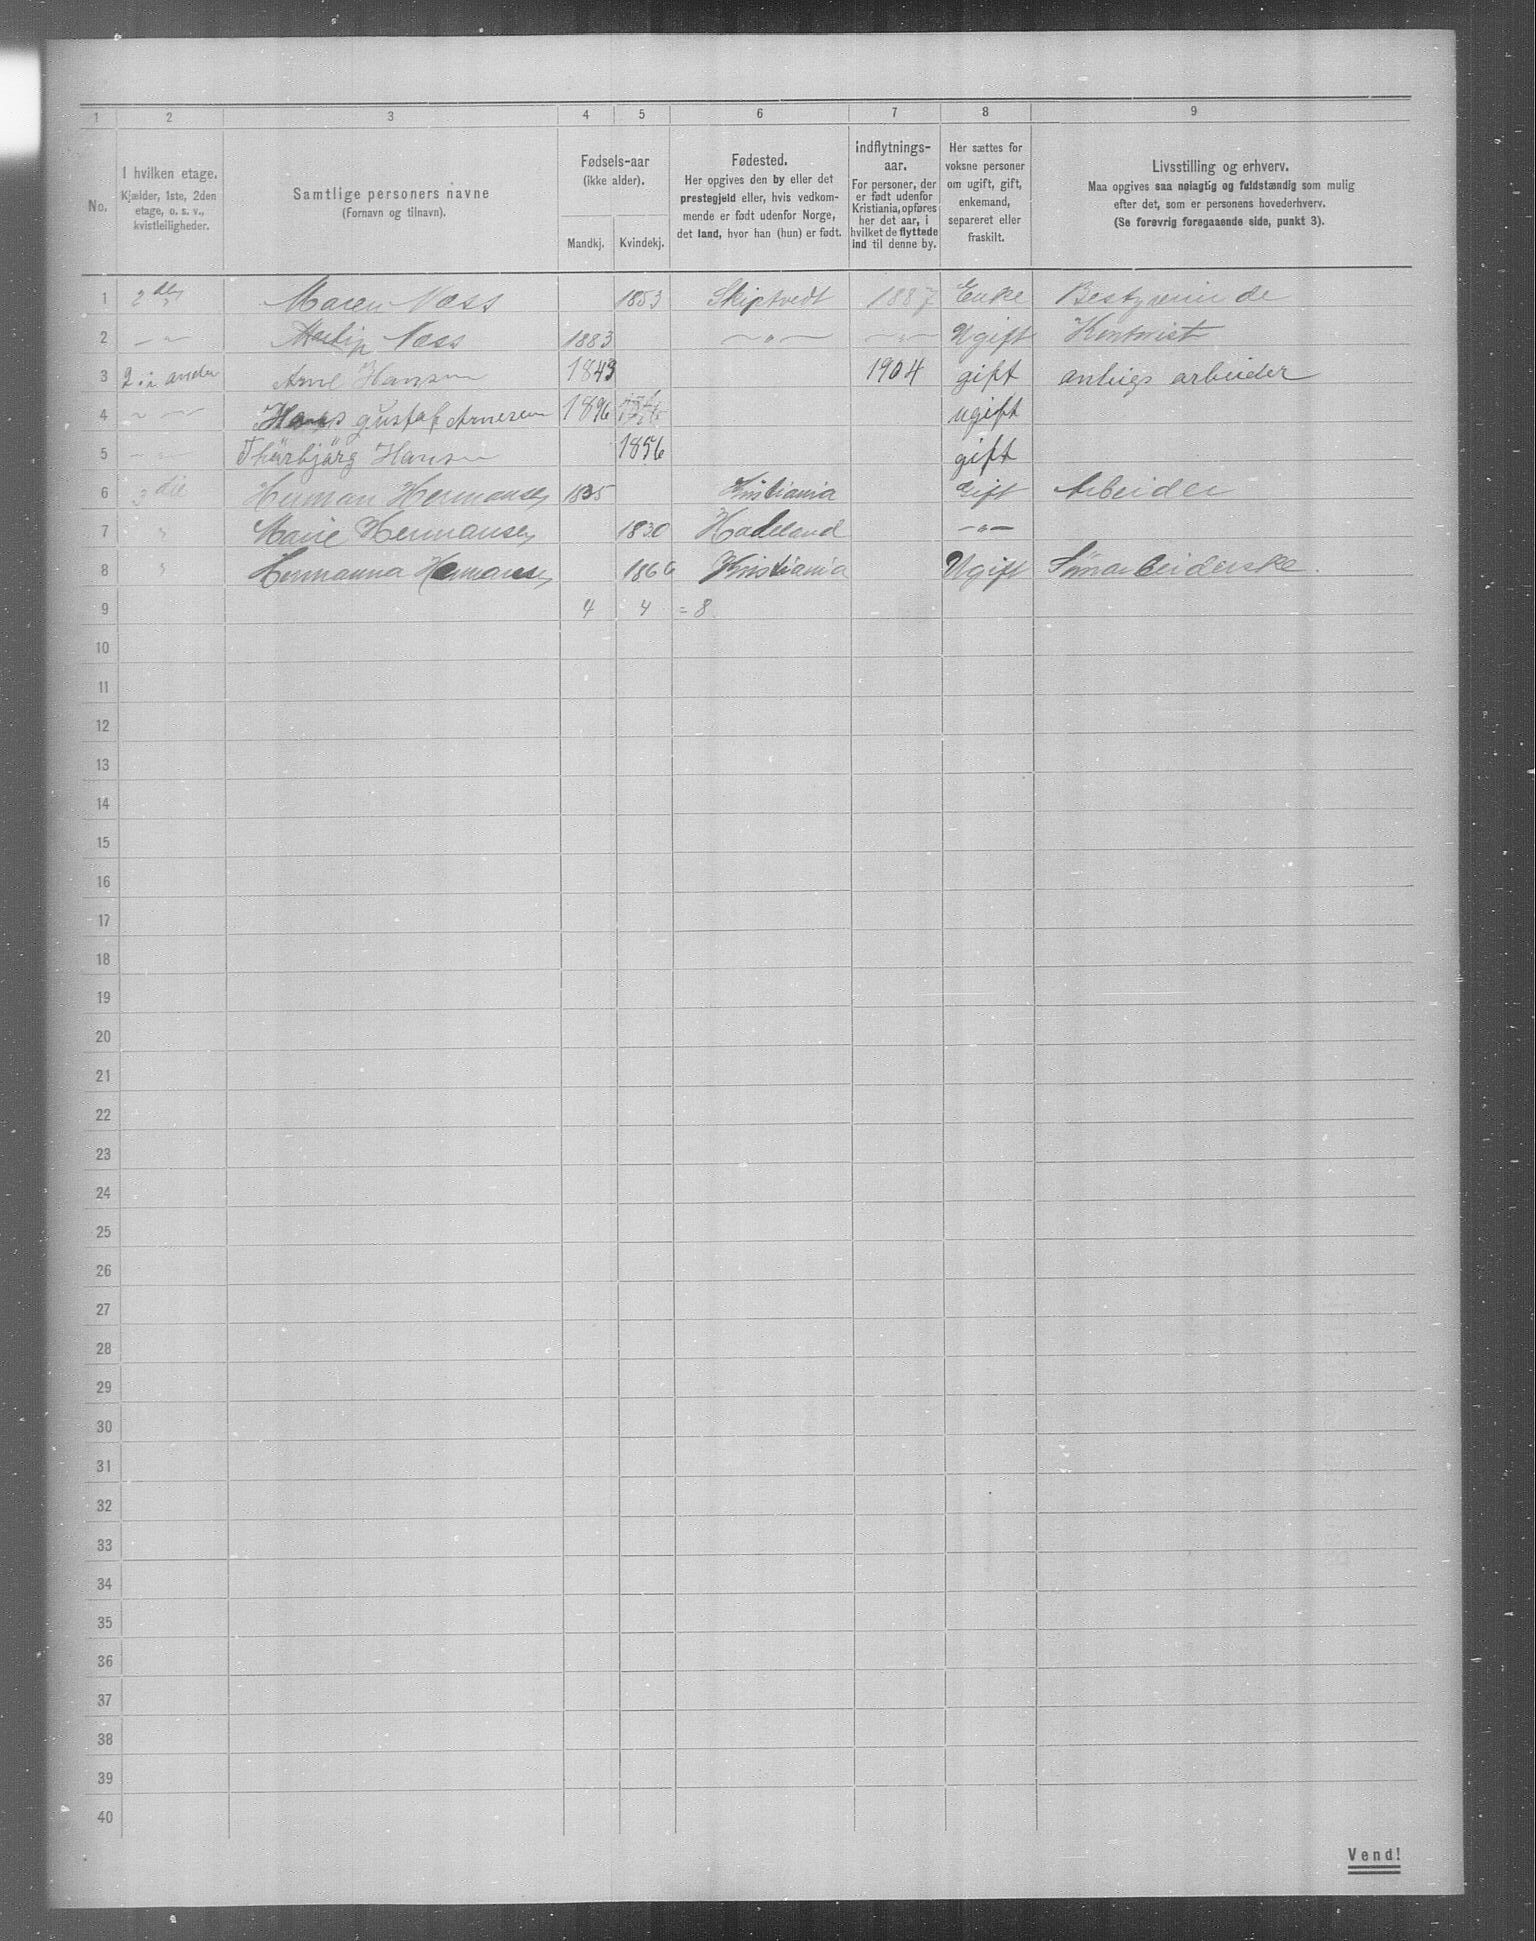 1 2 3 4 5 6 7 8 9
No.
I hvilken etage.
Kjælder, 1ste, 2den
etage, o. s. v.,
kvistleiligheder.
Samtlige personers navne
(Fornavn og tilnavn).
Fødsels-aar
(ikke alder).
Mandkj. Kvindekj.
Fødested.
Her opgives den by eller det
prestegjeld eller, hvis vedkom-
mende er født udenfor Norge,
det land, hvor han (hun) er født.
Indflytnings-
aar.
For personer, der
er født udenfor
Kristiania, opføres
her det aar, i
hvilket de flyttede
ind til denne by.
Her sættes for
voksne personer
om ugift, gift,
enkemand,
separeret eller
fraskilt.
Livsstilling og erhverv.
Maa opgives saa nøiagtig og fuldstændig som mulig
efter det, som er personens hovederhverv.
(Se forøvrig foregaaende side, punkt 3).
1 2 Maren Næss 1853 Skiptvedt 1887 Enke Bestyrerinde
2 — " — Næss 1883 — " — — " — Ugift Kontorist
3 Arne Hansen 1843 1904 gift arbeider
4 Hans gustaf Arnesen 1896 ugift
5 Thörbjörg Hansen 1856 gift
6 3die Herman Hermansen 1835 Kristiania Gift Arbeider
7 " Marie Hermansen 1830 Hadeland — " —
8 " Hermanna Hermansen 1866 Kristiania Ugift Sömarbeiderske.
9 4 4 = 8
10
11
12
13
14
15
16
17
18
19
20
21
22
23
24
25
26
27
28
29
30
31
32
33
34
35
36
37
38
39
40
Vend!